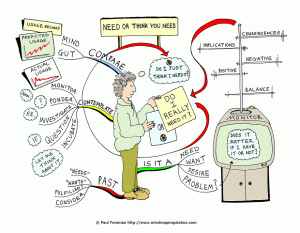 USAGE RECORDS
PREDICTED
USAGE
ACTUAL
USAGE
MIND
GUT
COMPARE
NEED OR THINK YOU NEED
DO I JUST
THINK I NEED IT?
MONITOR
PONDER
INVESTIGATE
QUESTION
INCUBATE
CONTEMPLATE
IF
?
LET ME
THINK
ABOUT
IT
DO
I
REALLY
NEED IT?
OR
IS IT A
NEED
WANT
DESIRE
PROBLEM?
"NEEDS"
"WANTS"
FULFILLED
CONSIDER
PAST
CONSEQUENCES
IMPLICATIONS
NEGATIVE
POSITIVE
BALANCE
MONITOR
DOES IT
MATTER
IF I HAVE
IT OR NOT?
© Paul Foreman http://www.mindmapinspiration.com